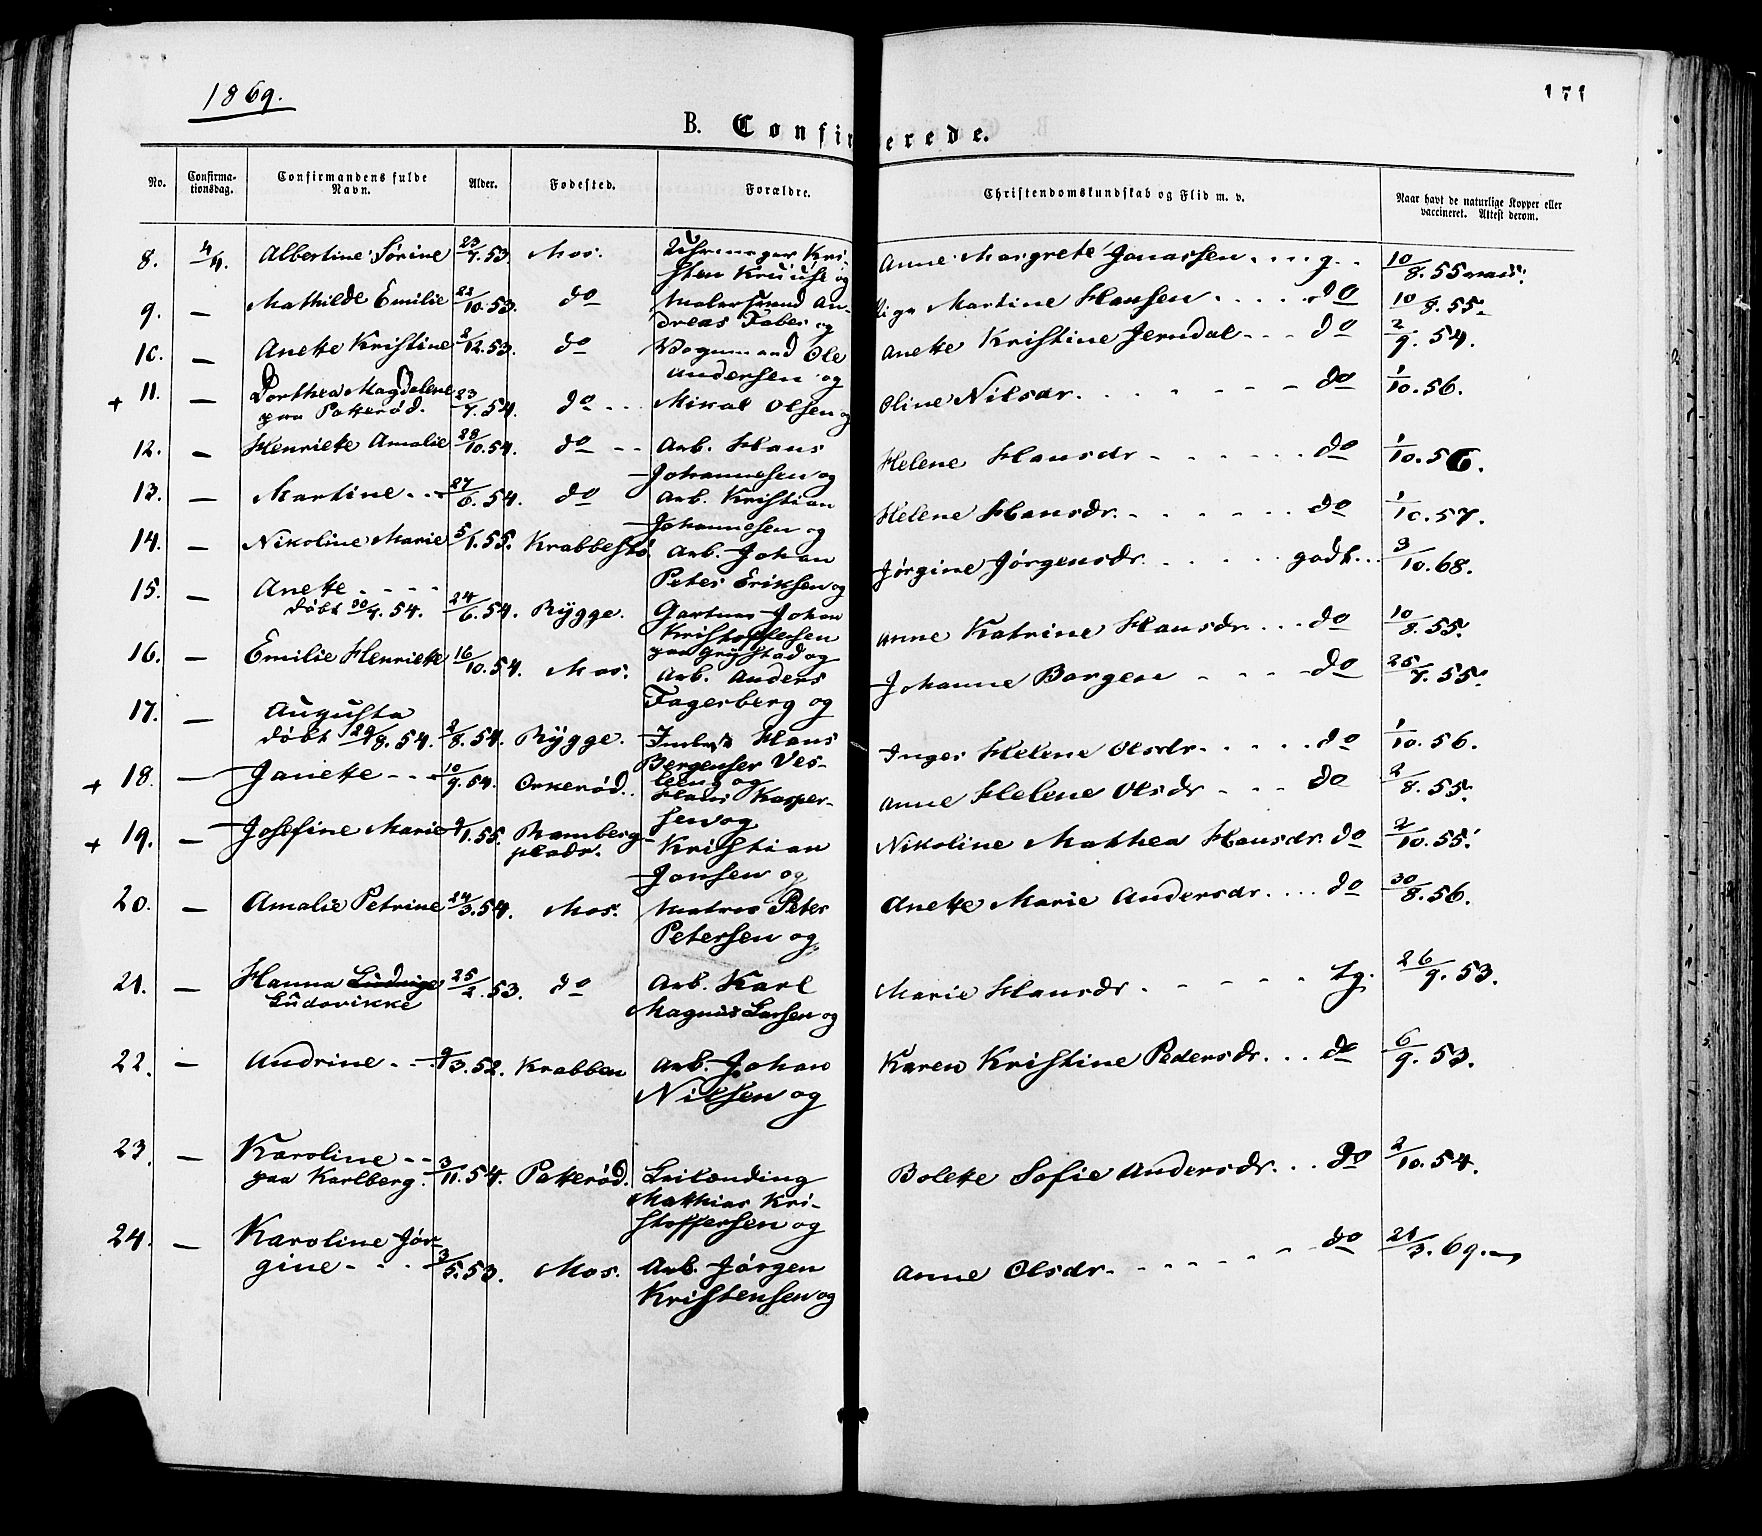 1869.
171
B. Confirmerede.
No. Confirma-tionsdag. Confirmandens fulde Navn. Alder. Fødested. Forældre. Christendomskundskab og Flid m. v. Naar havt de naturlige Kopper eller vaccineret. Attest derom.
8. 4/4. Albertine Sørine 23/7.53 Mos. Uhrmager Kri- Anne Margrete Jonassen .... g.. 10/8.55
sten Kruuse og
9. — Mathilde Emilie 22/10.53. do An- Martine Hansen .... do 10/8.55.
dreas Faber og
10. — Anette Kristine 2/12.53. do Vognmand Ole Anette Kristine Jerndal --- do 2/9.54.
Andersen og
+ 11. — Dorthea Magdalene 23/7.54. do... Mikal Olsen og Oline Nilsdr. - - - - do 1/10.56.
paa Patterød.
12. — Henriette Amalie 28/10.54. do -- Arb. Hans Helene Hansdr - - - - - do 1/10.56.
Johannesen og
13. — Martine --- 27/6.54. do Arb. Kristian Helene Hansdr. - - - - - do 1/10.57.
Johannesen og
14. — Nikoline Marie 5/1.55. Krabbestø Arb. Johan Jørgine Jørgensdr. . . . . . godt... 3/10.68.
Peter Eriksen og
15. — Anette - - - -
døbt 30/7.54. 24/6.54. Rygge. Gartner Johan Anne Katrine Hansdr ... do 10/8.55.
Kristoffersen
paa Grystad og
16. — Emilie Henriette 16/10.54. Mos. Arb. Anders Johanne Borgen - - - - do 25/7.55.
Fagerberg og
17. — Augusta
døbt 29/8.54. 2/8.54. Rygge. Hans Inger Helene Olsdr. - . . . . do 1/10.56.
Bergenser Ves-
leeng og
+ 18. — Janette --- 10/9.54. Orkerød. Hans Kasper- Anne Helene Olsdr - - - do 2/8.55.
sen og
+ 19. — Josefine Marie 9/1.55. Ramberg- Kristian Nikoline Mathea Hansdr. do 2/10.55.
pladr. Jonsen og
20. — Amalie Petrine 24/3.54. Mos. Matros Peter Anette Marie Andersdr. ... do 30/8.56.
Petersen og
21. — Hanna Ludvige 25/2.53. do Arb. Karl Marie Hansdr. - - - - tg. 26/9.53.
Ludovikke Magnus Larsen og
22. — Andrine - - . 9/3.52. Krabben Arb. Johan Karen Kristine Pedersdr. ... do 6/9.53.
Nilsen og
23. — Karoline --
paa Karlberg. 3/11.54. Patterød. Leilænding Bolette Sofie Andersdr. ... do 2/10.54.
Matthias Kri-
stoffersen og
24. — Karoline Jør-
gine - - - 3/5.53. Mos. Arb. Jørgen Anne Olsdr. - - - - - do 21/3.69.
Kristensen og